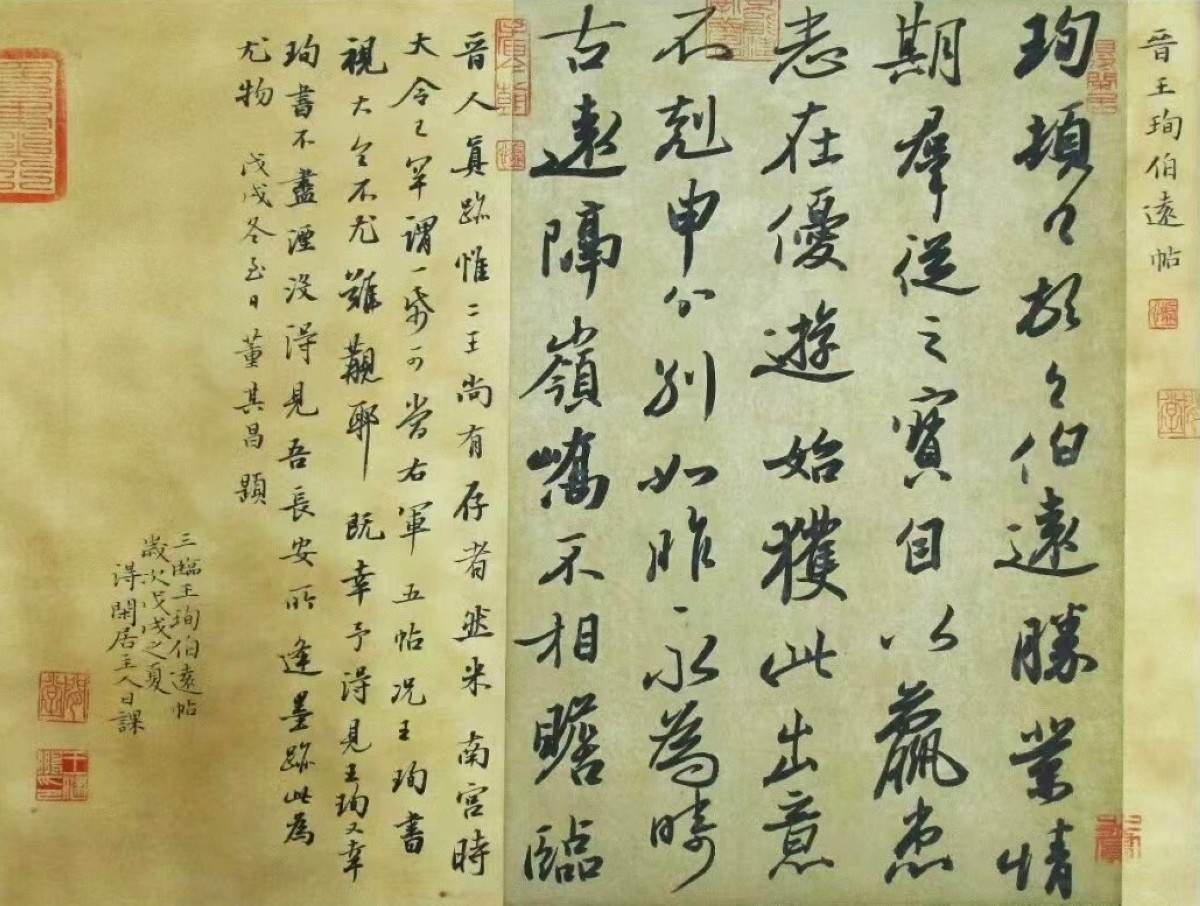 晉王珣伯遠帖
珣頓首頓首伯遠勝業情
期羣從之寶自以羸患
志在優遊始獲此出意
不剋申分別如昨永為疇
古遠隔嶺嶠不相瞻臨
晉人真跡惟二王尚有存者然米南宮時
大令已罕謂一紙可當右軍五帖況王珣書
視大令不尤難覯耶既幸予得見王珣又幸
珣書不盡湮沒得見吾長安所逢墨跡此為
尤物戊戌冬至日董其昌題
三臨王珣伯遠帖
歲次戊戌之夏
得閑居主人日課